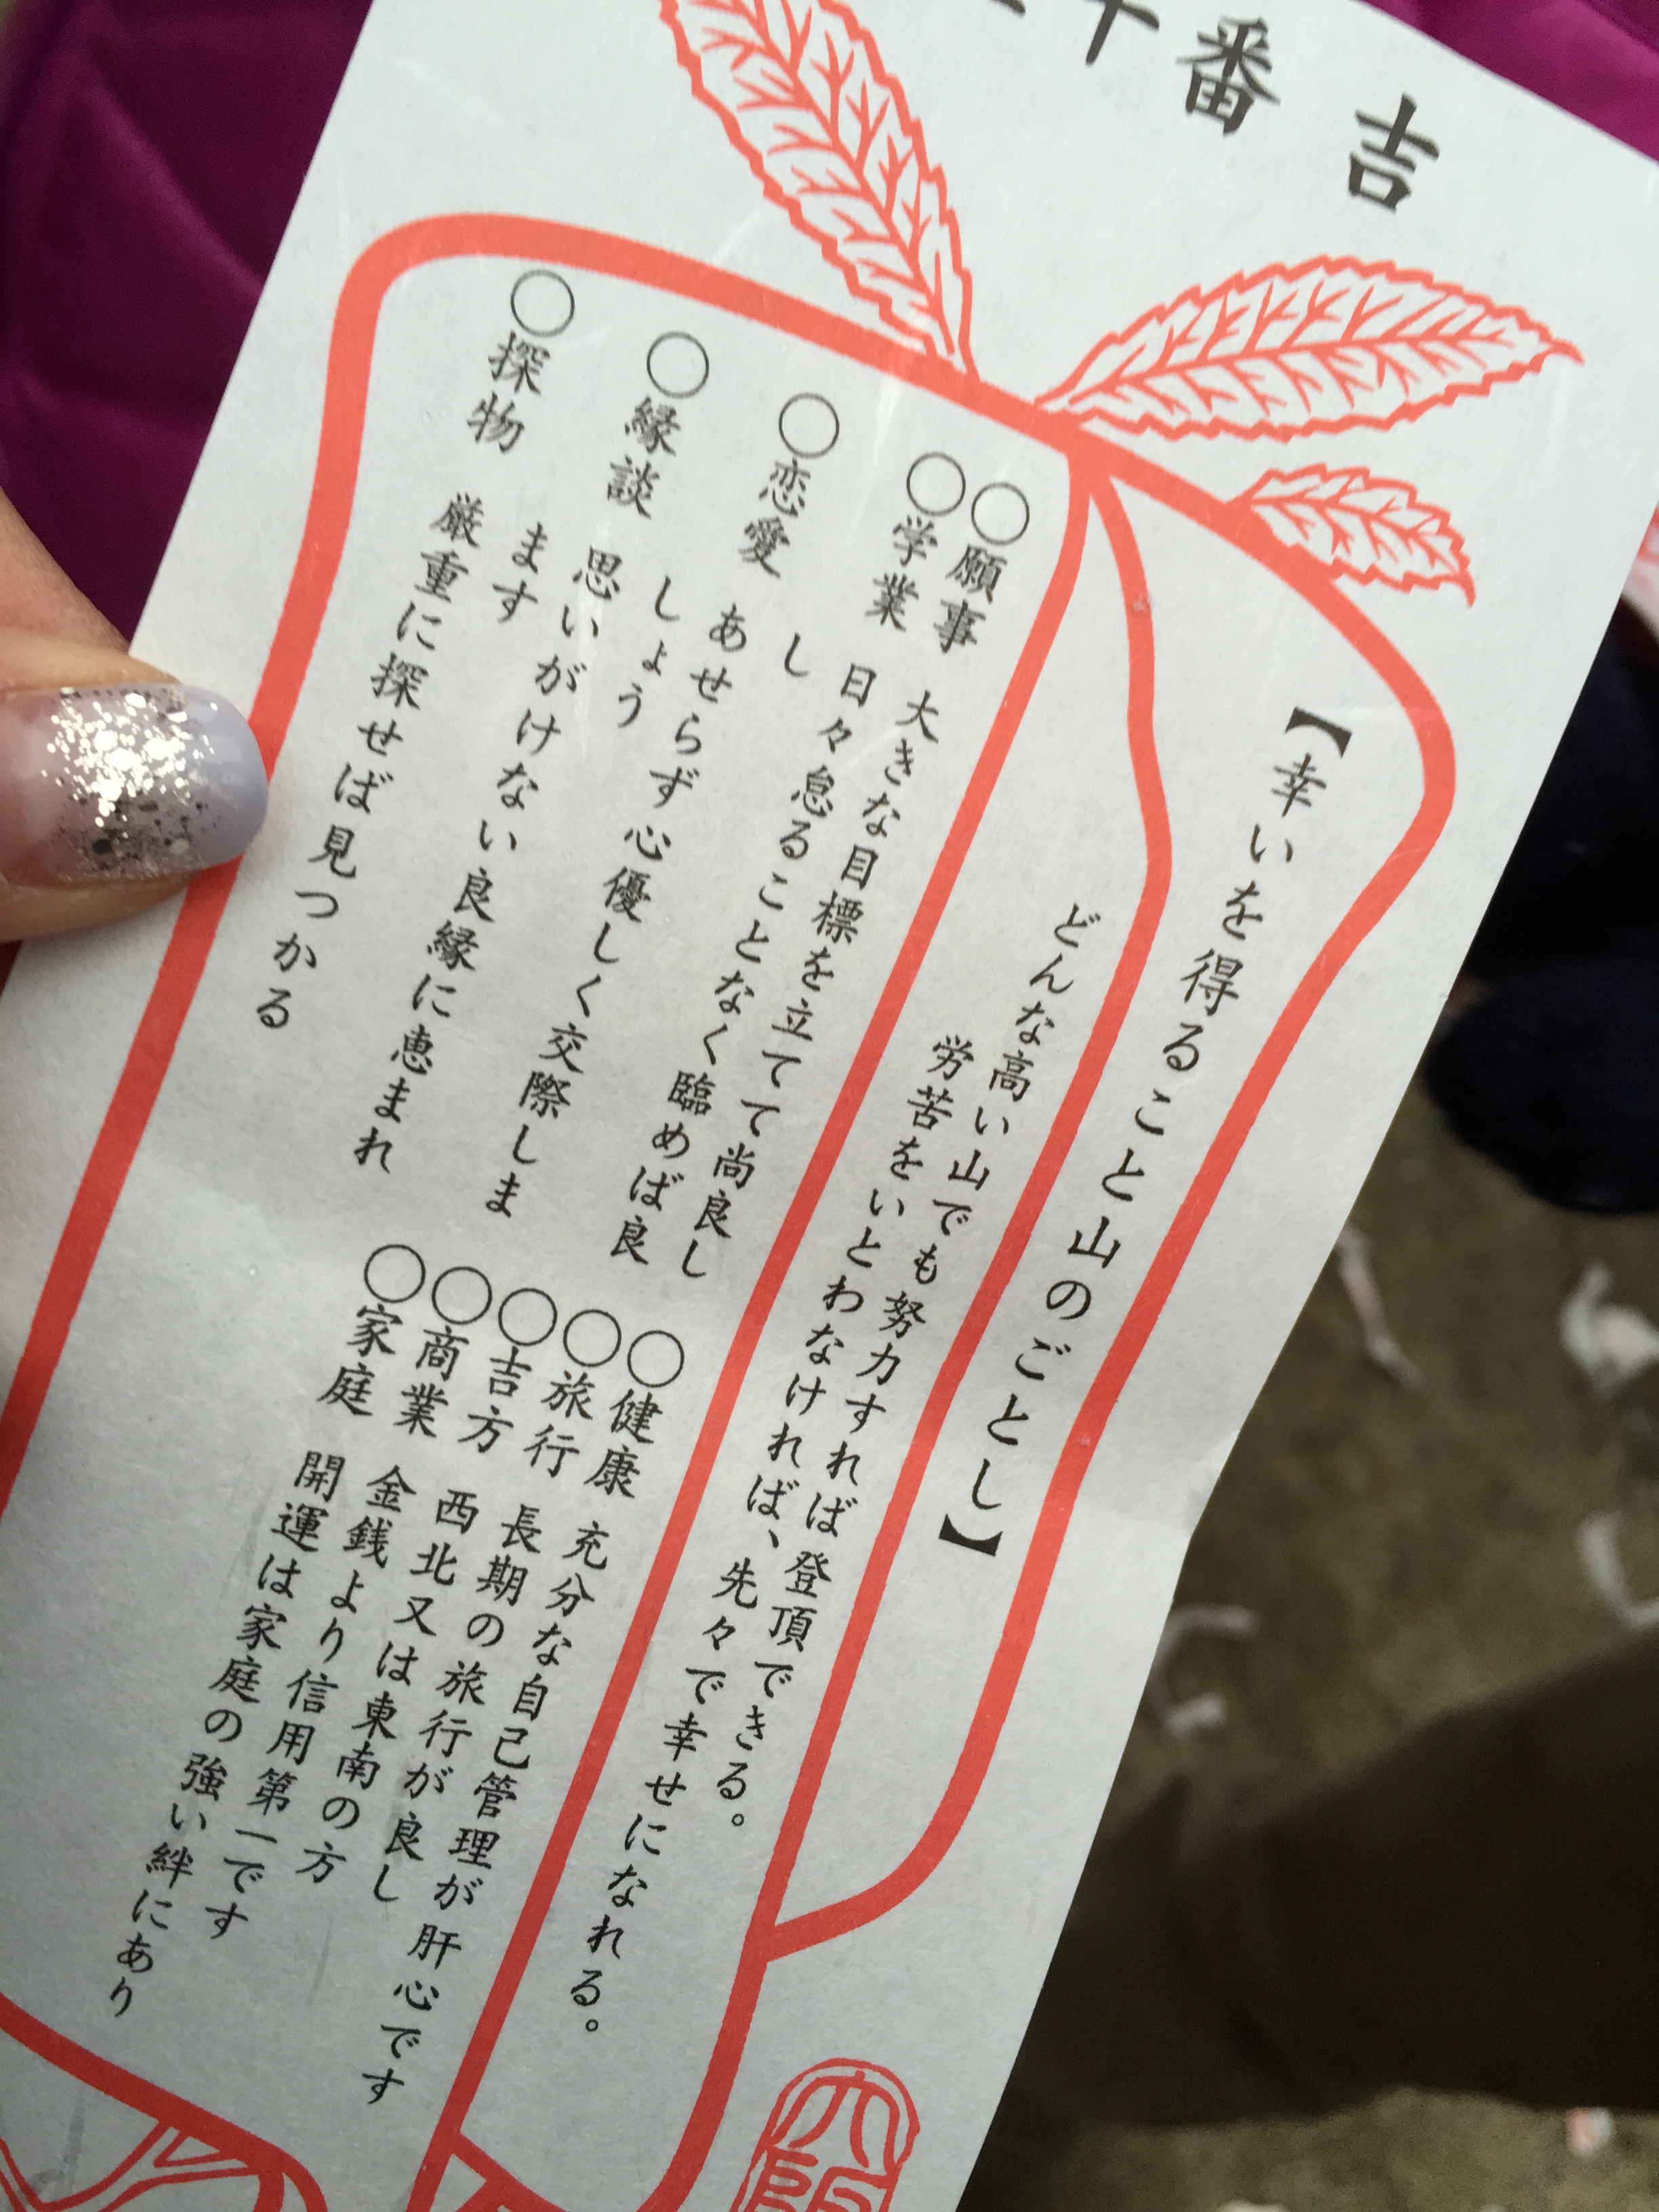 十番 吉
【幸いを得ること山のごとし】
どんな高い山でも努力すれば登頂できる。
労苦をいとわなければ、先々で幸せになれる。
○願事 大きな目標を立てて尚良し
○学業 日々怠ることなく臨めば良
し
○恋愛 あせらず心優しく交際しま
しょう
○縁談 思いがけない良縁に恵まれ
ます
○探物 厳重に探せば見つかる
○健康 充分な自己管理が肝心です
○旅行 長期の旅行が良し
○吉方 西北又は東南の方
○商業 金銭より信用第一です
○家庭 開運は家庭の強い絆にあり